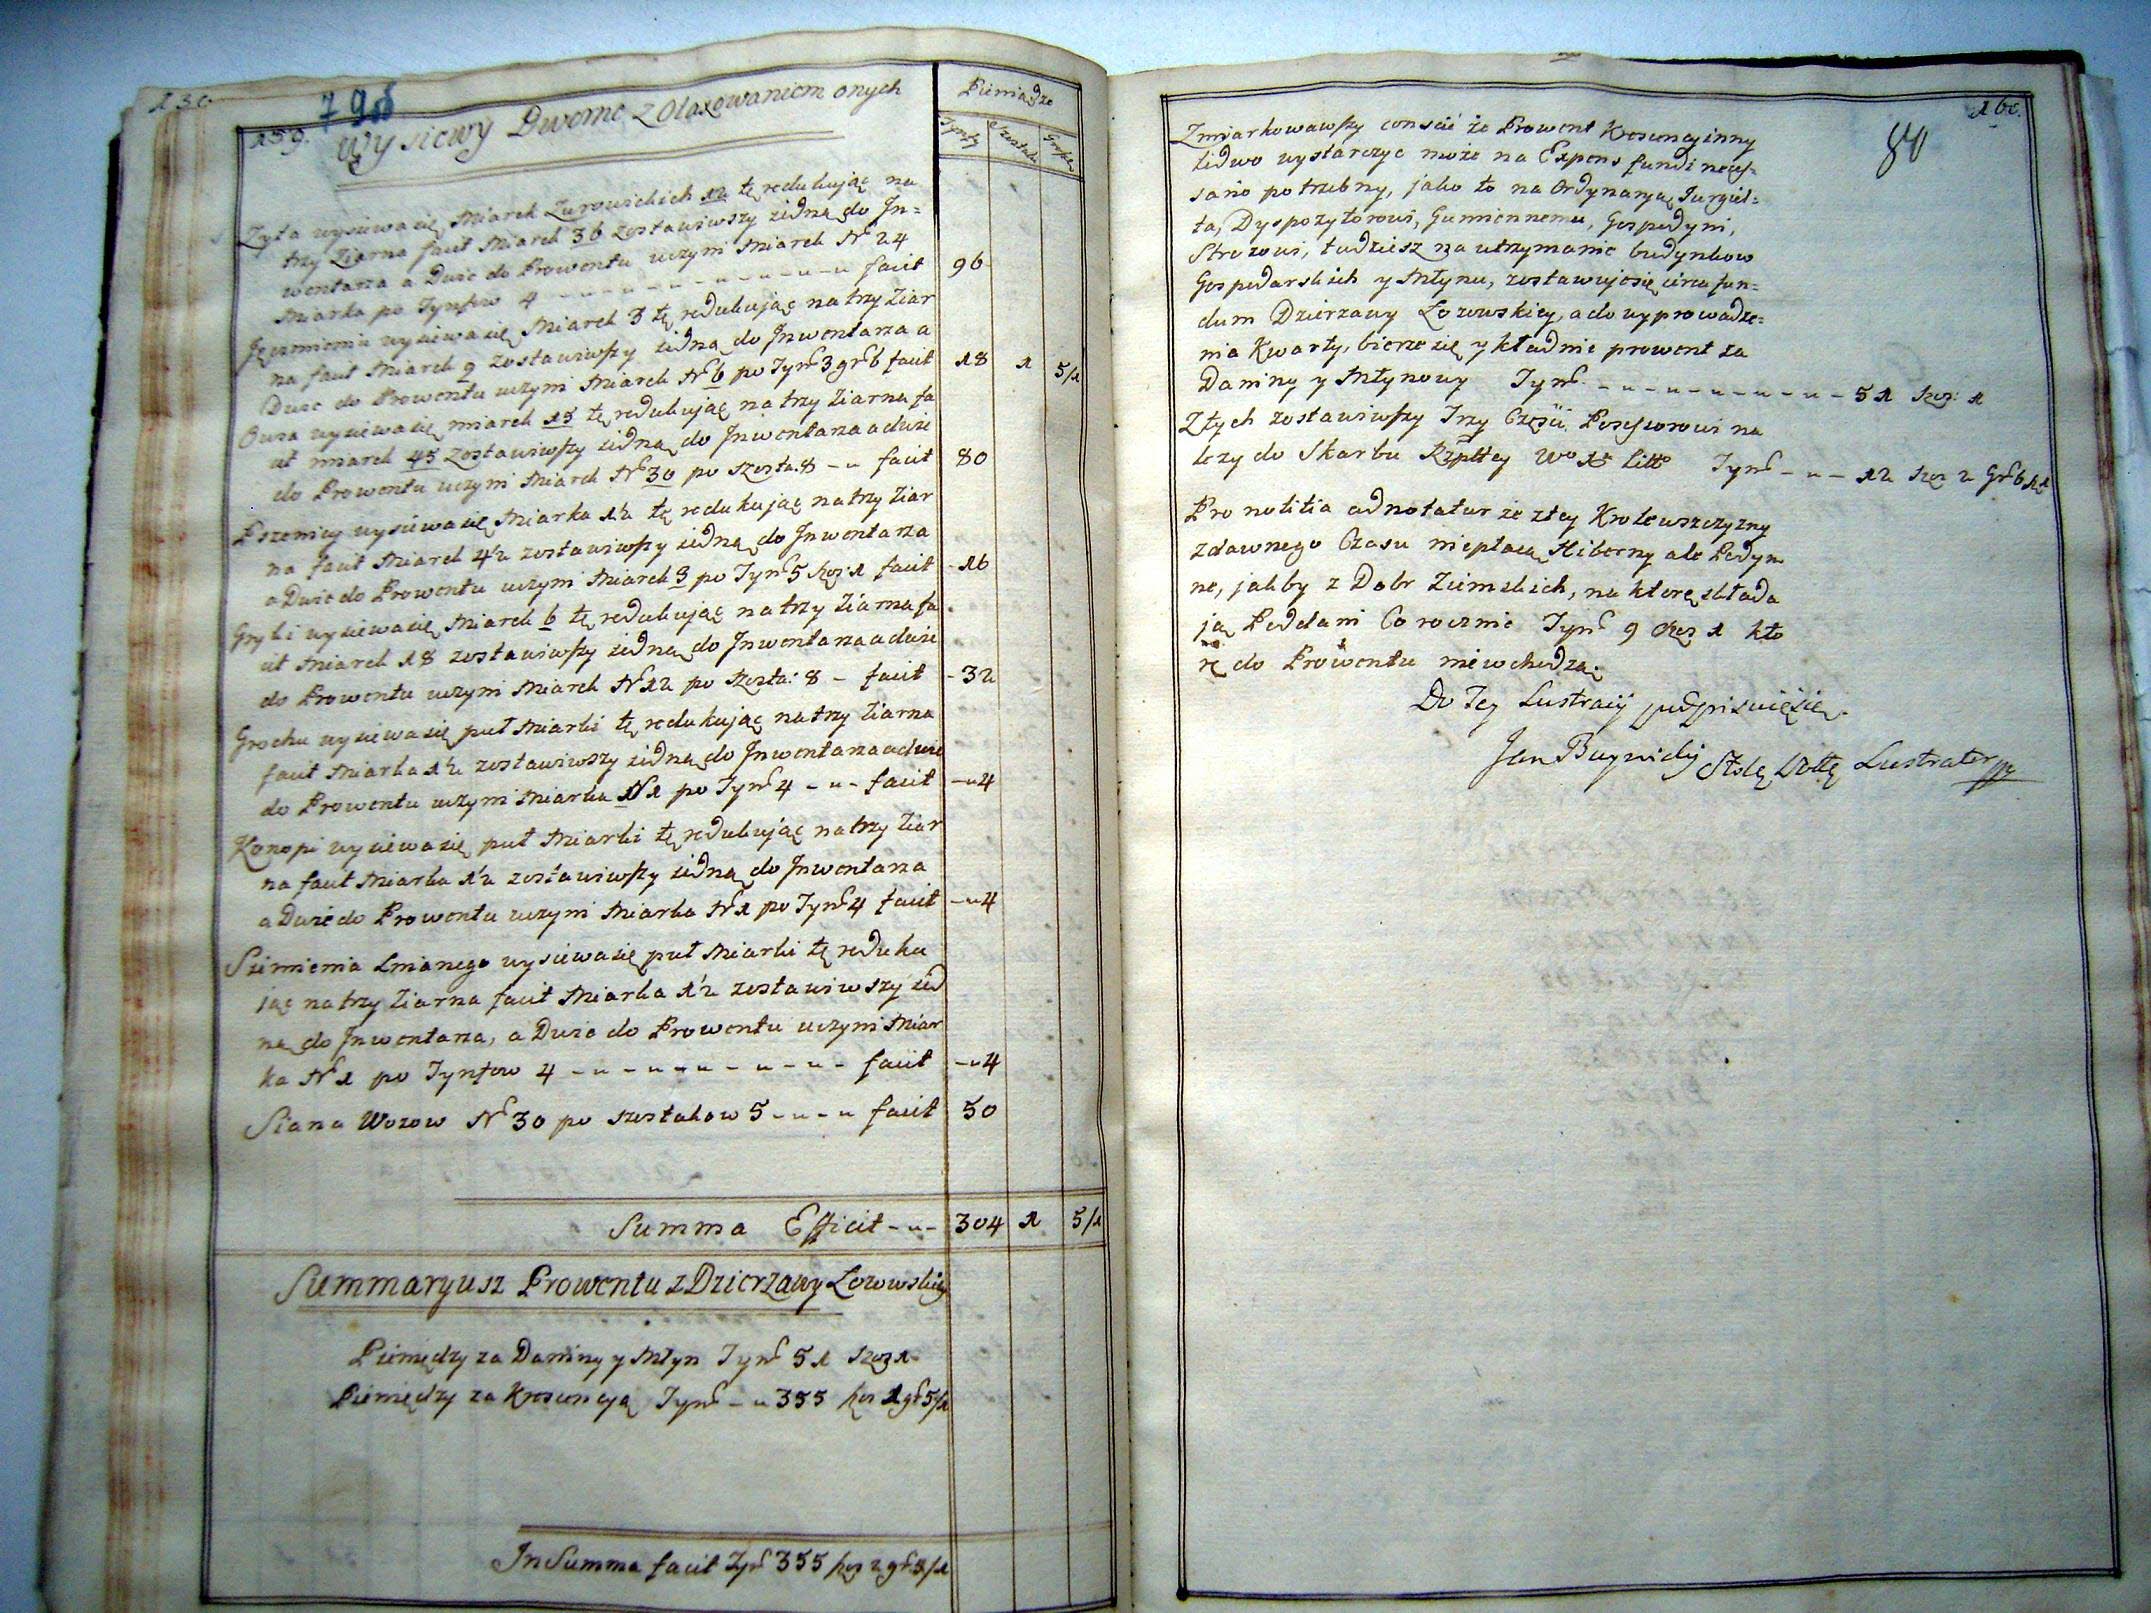 130
79
159.
Wysiewy Dworne z Otaxowaniem onych
Pieniądze
Tynfy Szostaki Grosze
Zyta wysiewa się Miarek Zurowickich 12 tę redukując na
trzy Ziarna facit Miarek 36 zostawiwszy iedną do In=
wentarza a Dwie do Prowentu uczyni Miarek Nro 24
Miarka po Tynfow 4 facit 96
Jęczmienia wysiewa się Miarek 3 tę redukując na trzy Ziar
na facit Miarek 9 zostawiwszy iedną do Inwentarza a
Dwie do Prowentu uczyni Miarek Nro 6 po Tynf 3 gr 6 facit 18 1 5/1
Owsa wysiewa się miarek 15 tę redukując na trzy Ziarna fa
cit miarek 45 zostawiwszy iedną do Inwentarza a dwie
do Prowentu uczyni Miarek Nro 30 po szosta: 8 facit 80
Pszenicy wysiewa się Miarka 1½ tę redukując na trzy Ziar
na facit Miarek 4½ zostawiwszy iedną do Inwentarza
a Dwie do Prowentu uczyni Miarek 3 po Tynf 5 szos: 1 facit 16
Gryki wysiewa się Miarek 6 tę redukując na trzy Ziarna fa
cit Miarek 18 zostawiwszy iedną do Inwentarza a dwie
do Prowentu uczyni Miarek Nro 12 po Szosta: 8 facit 32
Grochu wysiewa się puł Miarki tę redukując na trzy Ziarna
facit Miarka 1½ zostawiwszy iedną do Inwentarza a dwie
do Prowentu uczyni Miarka Nro 1 po Tynf 4 facit 4
Konopi wysiewa się puł Miarki tę redukując na trzy Ziar
na facit Miarka 1½ zostawiwszy iedną do Inwentarza
a Dwie do Prowentu uczyni Miarka Nro 1 po Tynf 4 facit 4
Siemienia Lnianego wysiewa się puł Miarki tę reduku
jąc na trzy Ziarna facit Miarka 1½ zostawiwszy ied
ną do Inwentarza, a Dwie do Prowentu uczyni Miar
ka Nro 1 po Tynfow 4 facit 4
Siana Wozow Nro 30 po szostakow 5 facit 50
Summa Efficit 304 1 5/1
Summaryusz Prowentu z Dzierzawy Lozowskiey
Pieniędzy za Daniny y Młyn Tynf 51 szos 1
Pieniędzy za Krescencyą Tynf 355 szos 1 gr 5/1
In Summa facit Tynf 355 szos 2 gr 5/1
160.
80
Zmiarkowawszy że Prowent Krescencyinny
ledwo wystarczyc może na Expens fundi neces=
sario potrzebny, jako to na Ordynaryą, Jurgiel=
ta, Dyspozytorowi, Gumiennemu, Gospodyni,
Strozowi, tudziesz na utrzymanie budynkow
Gospodarskich y Młynu, zostawuje się circa fun=
dum Dzierzawy Lozowskiey, a do wyprowadze=
nia Kwarty, bierze się y kładnie prowent za
Daniny y Młynowy Tynf 51 szos: 1
Z tych zostawiwszy Trzy Części Possessorowi na
leży do Skarbu Rzpltey Wo Xa Litto Tynf 12 szos 2 Gr 6
Pro notitia adnotatur że z tey Krolewszczyzny
z dawnego Czasu niepłacą Hiberny ale Podym
ne, jakby z Dobr Ziemskich, na ktorę składa
ją Poddani Co rocznie Tynf 9 szos 1 kto
rę do Prowentu niewchodzą.
Do Tey Lustracij podpisuięsię
Jan Lustrator